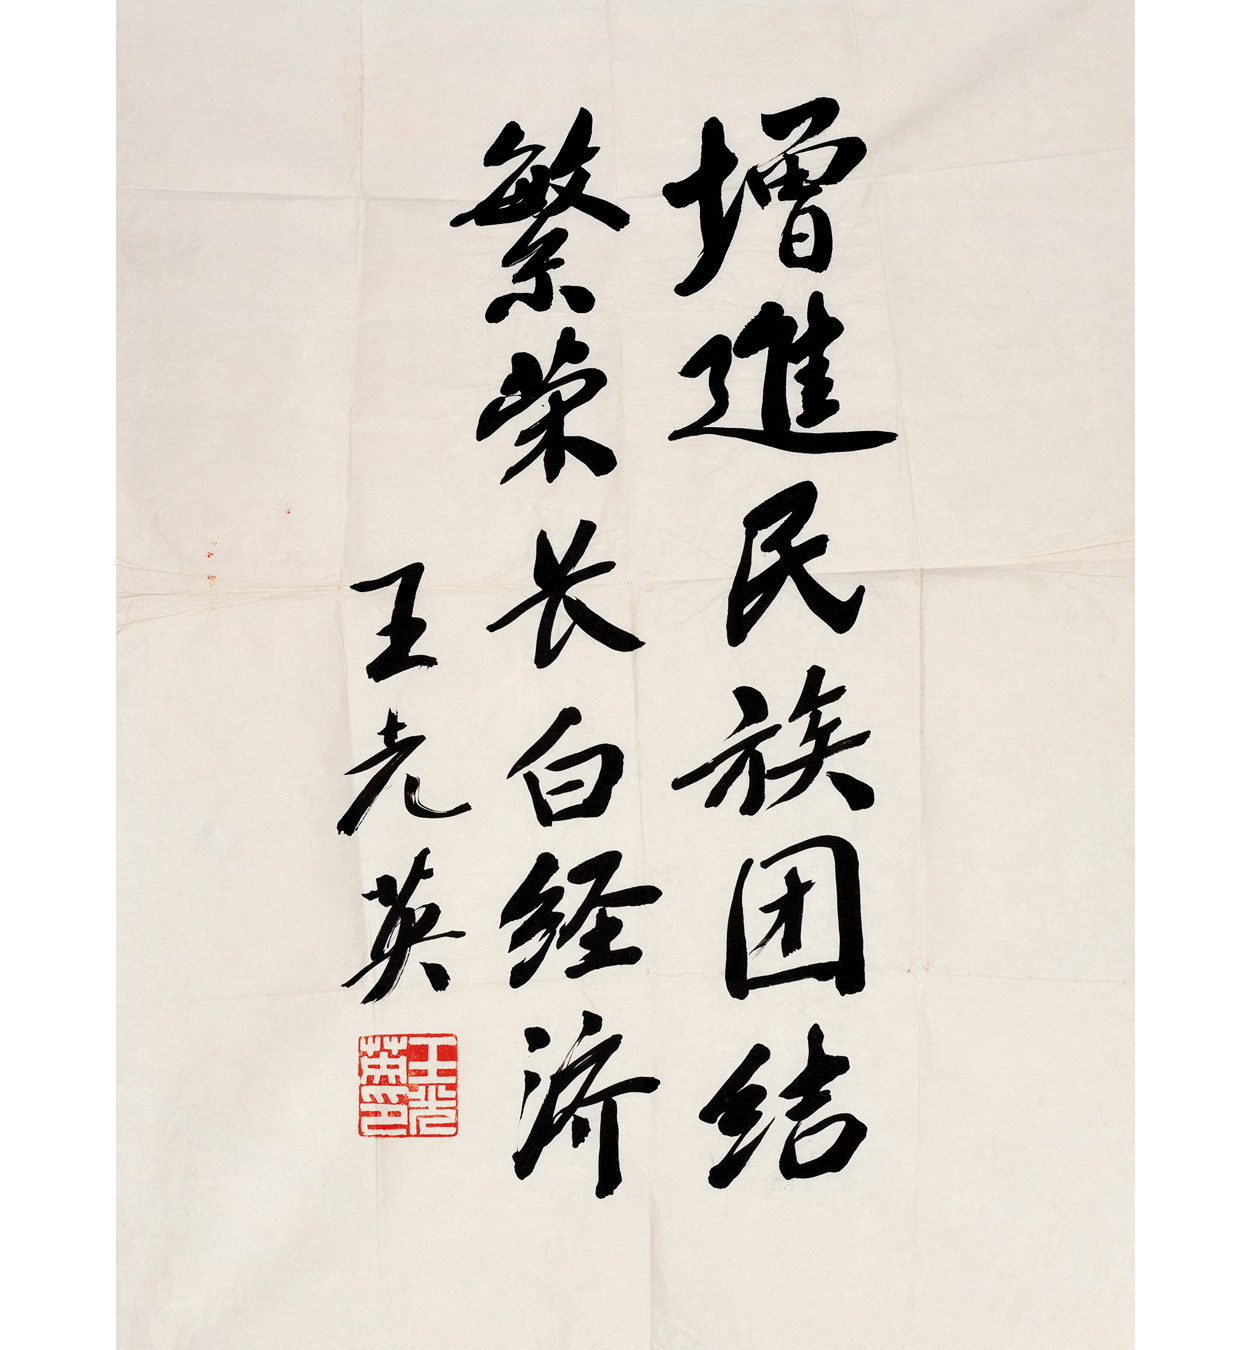 增進民族团结
繁荣长白经济
王光英
王光英印